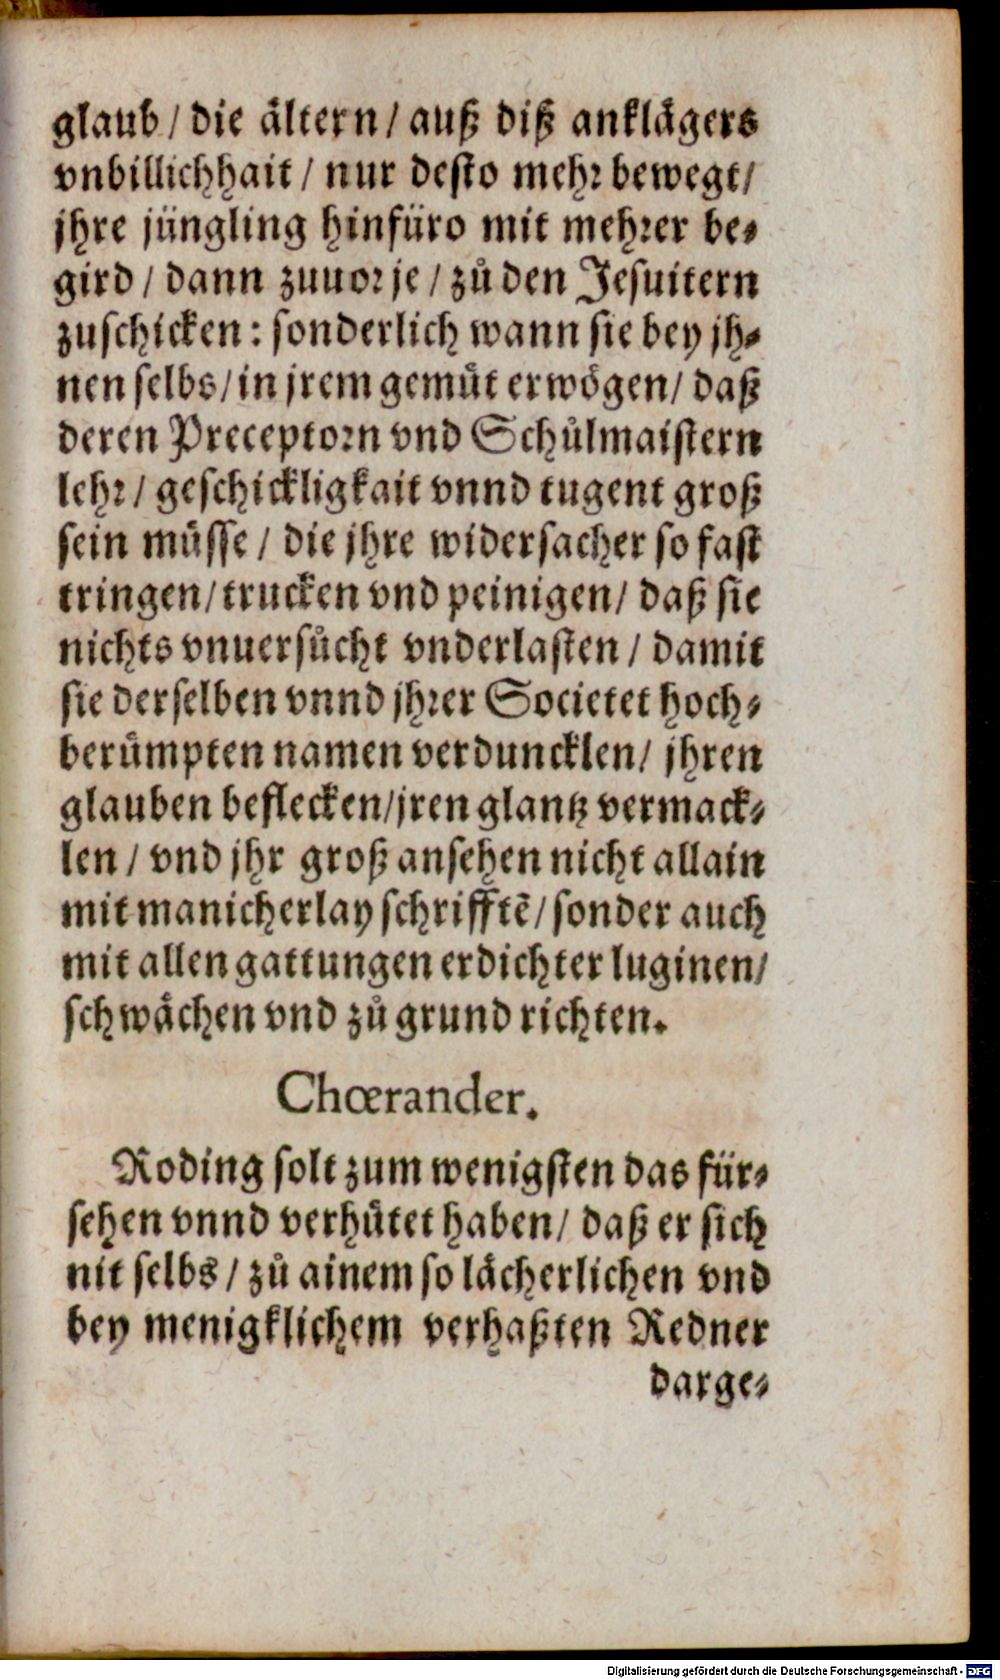 glaub / die ältern / auß diß anklägers
vnbillichhait / nur desto mehr bewegt /
jhre jüngling hinfüro mit mehrer be-
gird / dann zuuor je / zů den Jesuitern
zuschicken : sonderlich wann sie bey jh-
nen selbs / in jrem gemüt erwögen / daß
deren Preceptorn vnd Schůlmaistern
lehr / geschickligkait vnnd tugent groß
sein müsse / die jhre widersacher so fast
tringen / trucken vnd peinigen / daß sie
nichts vnuersůcht vnderlasten / damit
sie derselben vnnd jhrer Societet hoch-
berümpten namen verduncklen / jhren
glauben beflecken / jren glantz vermack-
len / vnd jhr groß ansehen nicht allain
mit manicherlay schrifftẽ / sonder auch
mit allen gattungen erdichter luginen /
schwächen vnd zů grund richten.
Chœrander.
Roding solt zum wenigsten das für-
sehen vnnd verhütet haben / daß er sich
nit selbs / zů ainem so lächerlichen vnd
bey menigklichem verhaßten Redner
darge-
Digitalisierung gefördert durch die Deutsche Forschungsgemeinschaft - DFG